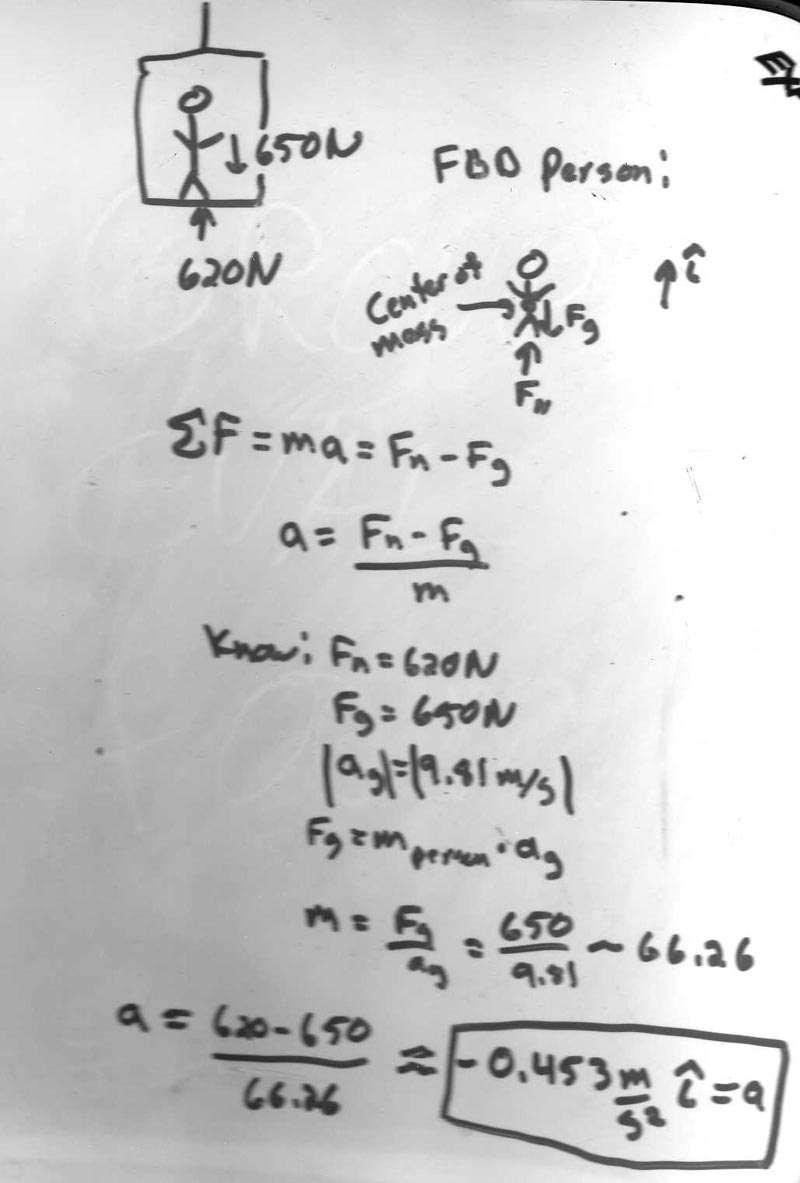 ↓650N
620N
FBD Person:
↑ î
Center of
mass
Fg
Fn
ΣF = ma = Fn - Fg
a = Fn - Fg
m
Know: Fn = 620N
Fg = 650N
|ag| = |9.81 m/s|
Fg = m person · ag
m = Fg/ag = 650/9.81 ~ 66.26
a = 620-650/66.26 ≈ -0.453 m/s² î = a